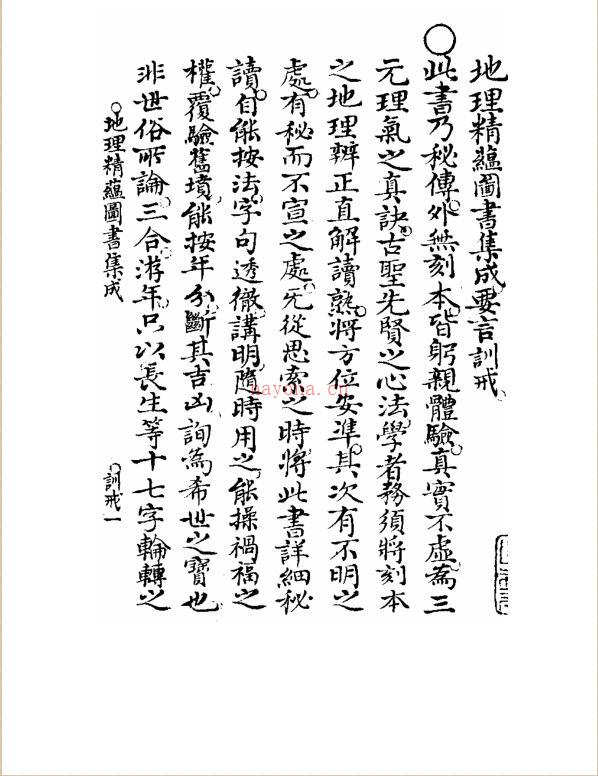 地理精蘊圖書集成要言訓戒
○此書乃秘傳外無刻本皆躬親體驗真實不虛為三
元理氣之真訣古聖先賢之心法學者務須將刻本
之地理辨正直解讀熟將方位安準其次有不明之
處有秘而不宣之處無從思索之時將此書詳細秘
讀自能按法字句透徹講明隨時用之能操禍福之
權覆驗舊墳能按年分斷其吉凶詢為希世之寶也
非世俗所論三合游年只以長生等十七字輪轉之
○地理精蘊圖書集成
訓戒一